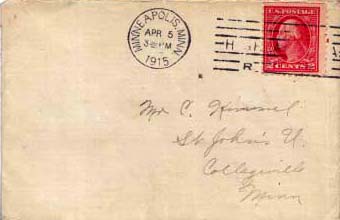 MINNEAPOLIS, MINN.
APR 5
3 PM
1915
U.S. POSTAGE
2 CENTS 2
Mr C. Kimmel
St. John's U.
Collegeville
Minn